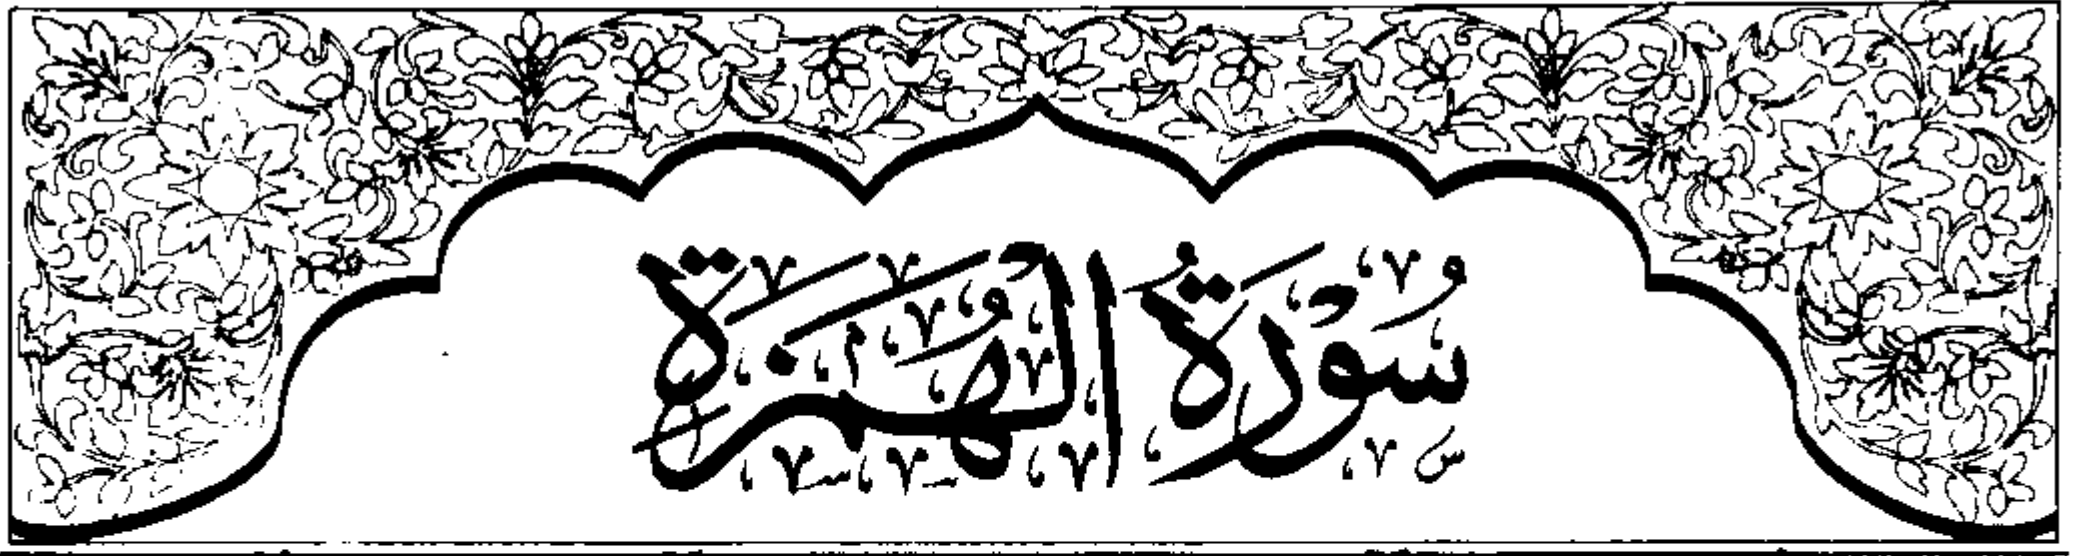 سُوْرَةُ الْهُمَزَةِ